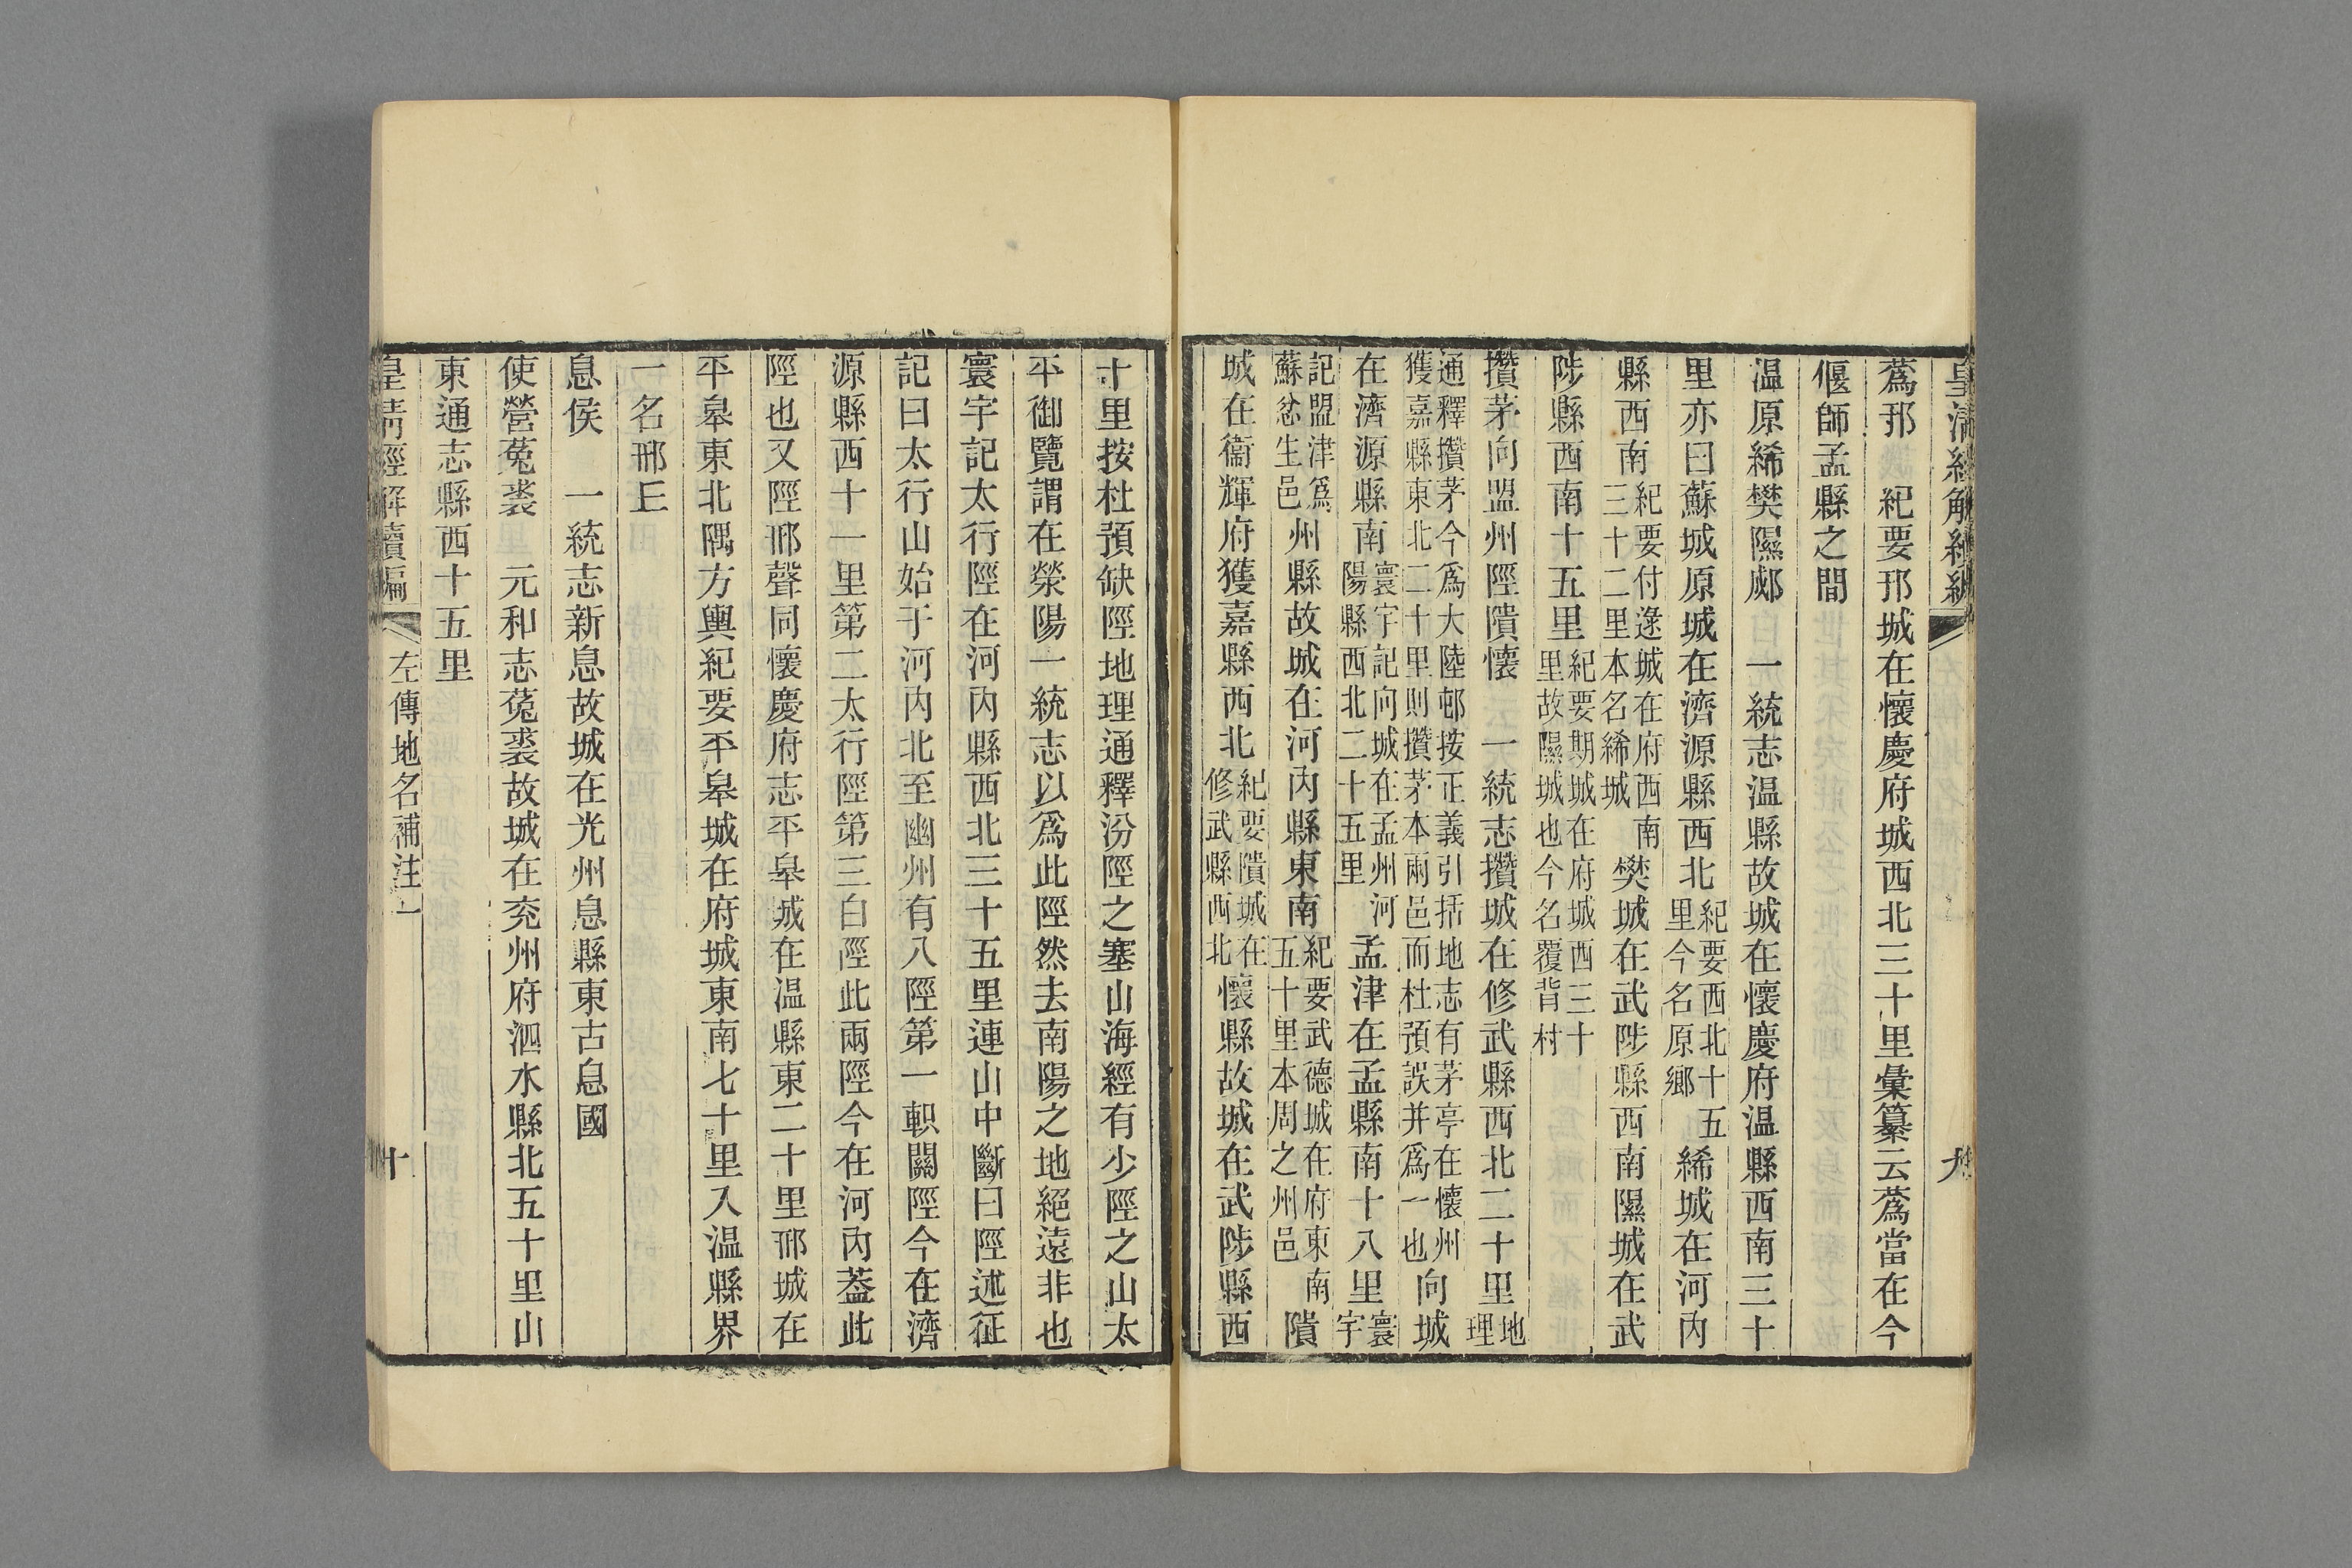 蔿邘　紀要邘城在懷慶府城西北三十里彙纂云蔿當在今
偃師孟縣之間
温原絺樊隰郕　一統志温縣故城在懷慶府温縣西南三十
里亦曰蘇城原城在濟源縣西北紀要西北十五里今名原鄉絺城在河內
縣西南紀要付逯城在府西南三十二里本名絺城樊城在武陟縣西南隰城在武
陟縣西南十五里紀要期城在府城西三十里故隰城也今名覆背村
攢茅向盟州陘隤懷　一統志攢城在修武縣西北二十里地理
通釋攢茅今爲大陸邨按正義引括地志有茅亭在懷州獲嘉縣東北二十里則攢茅本兩邑而杜預誤并爲一也向城
在濟源縣南寰宇記向城在孟州河陽縣西北二十五里孟津在孟縣南十八里寰宇
記盟津爲蘇忿生邑州縣故城在河內縣東南紀要武德城在府東南五十里本周之州邑隤
城在衞輝府獲嘉縣西北紀要隤城在修武縣西北懷縣故城在武陟縣西
十里按杜預缺陘地理通釋汾陘之塞山海經有少陘之山太
平御覽謂在滎陽一統志以爲此陘然去南陽之地絕遠非也
寰宇記太行陘在河內縣西北三十五里連山中斷曰陘述征
記曰太行山始于河內北至幽州有八陘第一軹關陘今在濟
源縣西十一里第二太行陘第三白陘此兩陘今在河內葢此
陘也又陘邢聲同懷慶府志平皋城在温縣東二十里邢城在
平皋東北隅方輿紀要平皋城在府城東南七十里入温縣界
一名邢㠪
息侯　一統志新息故城在光州息縣東古息國
使營菟裘　元和志菟裘故城在兖州府泗水縣北五十里山
東通志縣西十五里
皇清經解續編　左傳地名補注一　十